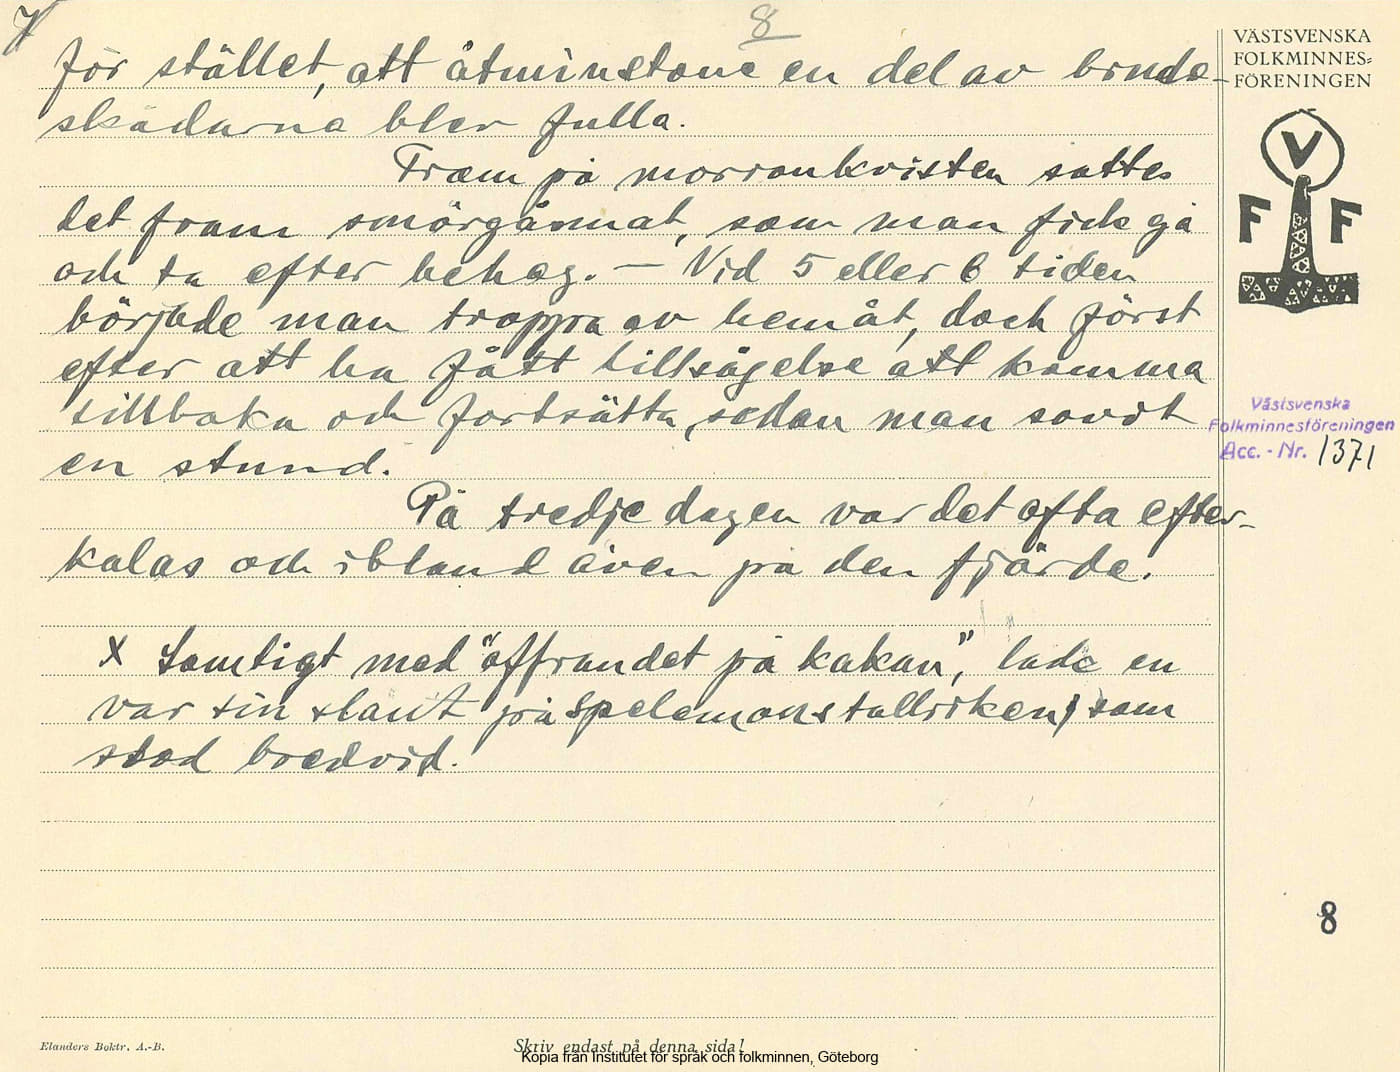 8
för stället, att åtminstone en del av brude-
skådarna blev fulla.
Fram på morronkvisten sattes
det fram smörgåsmat, som man fick gå
och ta efter behag. — Vid 5 eller 6 tiden
började man troppa av hemåt, dock först
efter att ha fått tillsägelse att komma
tillbaka och fortsätta, sedan man sovit
en stund.
På tredje dagen var det ofta efter-
kalas och ibland även på den fjärde.
x Samtigt med "offrandet på kakan", lade en
var sin slant på spelemanstallriken, som
stod bredvid.
VÄSTSVENSKA
FOLKMINNES=
FÖRENINGEN
V
F F
Västsvenska
Folkminnesföreningen
Acc. - Nr. 1371
8
Elanders Boktr. A.-B.
Skriv endast på denna sida!
Kopia från Institutet för språk och folkminnen, Göteborg